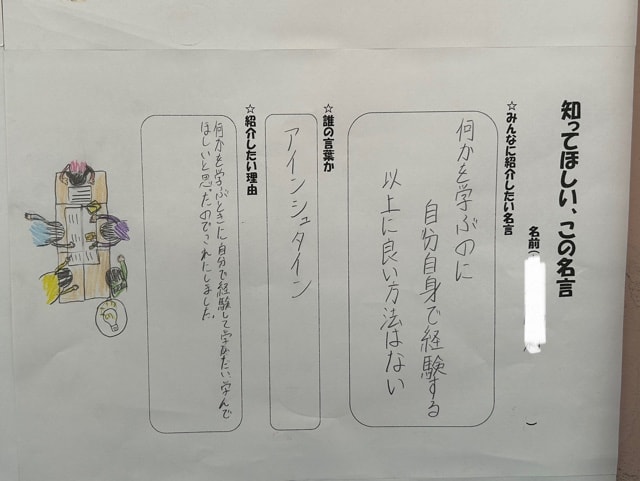 知ってほしい、この名言
名前( )
☆みんなに紹介したい名言
何かを学ぶのに
自分自身で経験する
以上に良い方法はない
☆誰の言葉か
アインシュタイン
☆紹介したい理由
何かを学ぶときに自分で経験して学びたい、学んで
ほしいと思ったのでこれにしました。